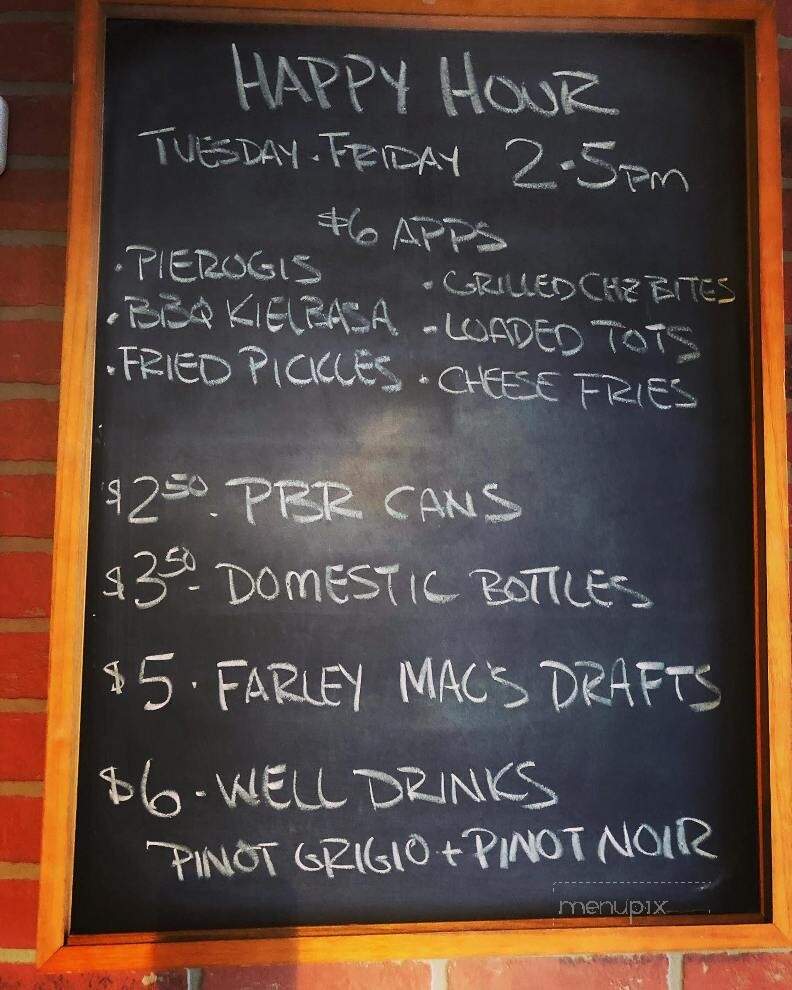 HAPPY HOUR
TUESDAY - FRIDAY 2-5PM
$6 APPS
• PIEROGIS
• BBQ KIELBASA
• FRIED PICKLES
• GRILLED CHZ BITES
- LOADED TOTS
• CHEESE FRIES
$2.50 - PBR CANS
$3.50 - DOMESTIC BOTTLES
$5 - FARLEY MAC'S DRAFTS
$6 - WELL DRINKS
PINOT GRIGIO + PINOT NOIR
menupix